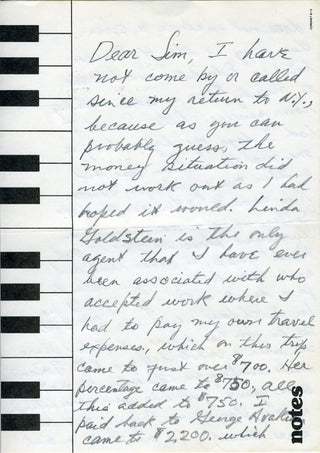 Dear Sim, I have
not come by or called
since my return to N.Y.,
because as you can
probably guess, the
money situation did
not work out as I had
hoped it would. Linda
Goldstein is the only
agent that I have ever
been associated with who
accepted work where I
had to pay my own travel
expenses, which on this trip
came to just over $700. Her
percentage came to $750, all
this added to $750. I
paid back to George Avakian
came to $2,200. which
notes